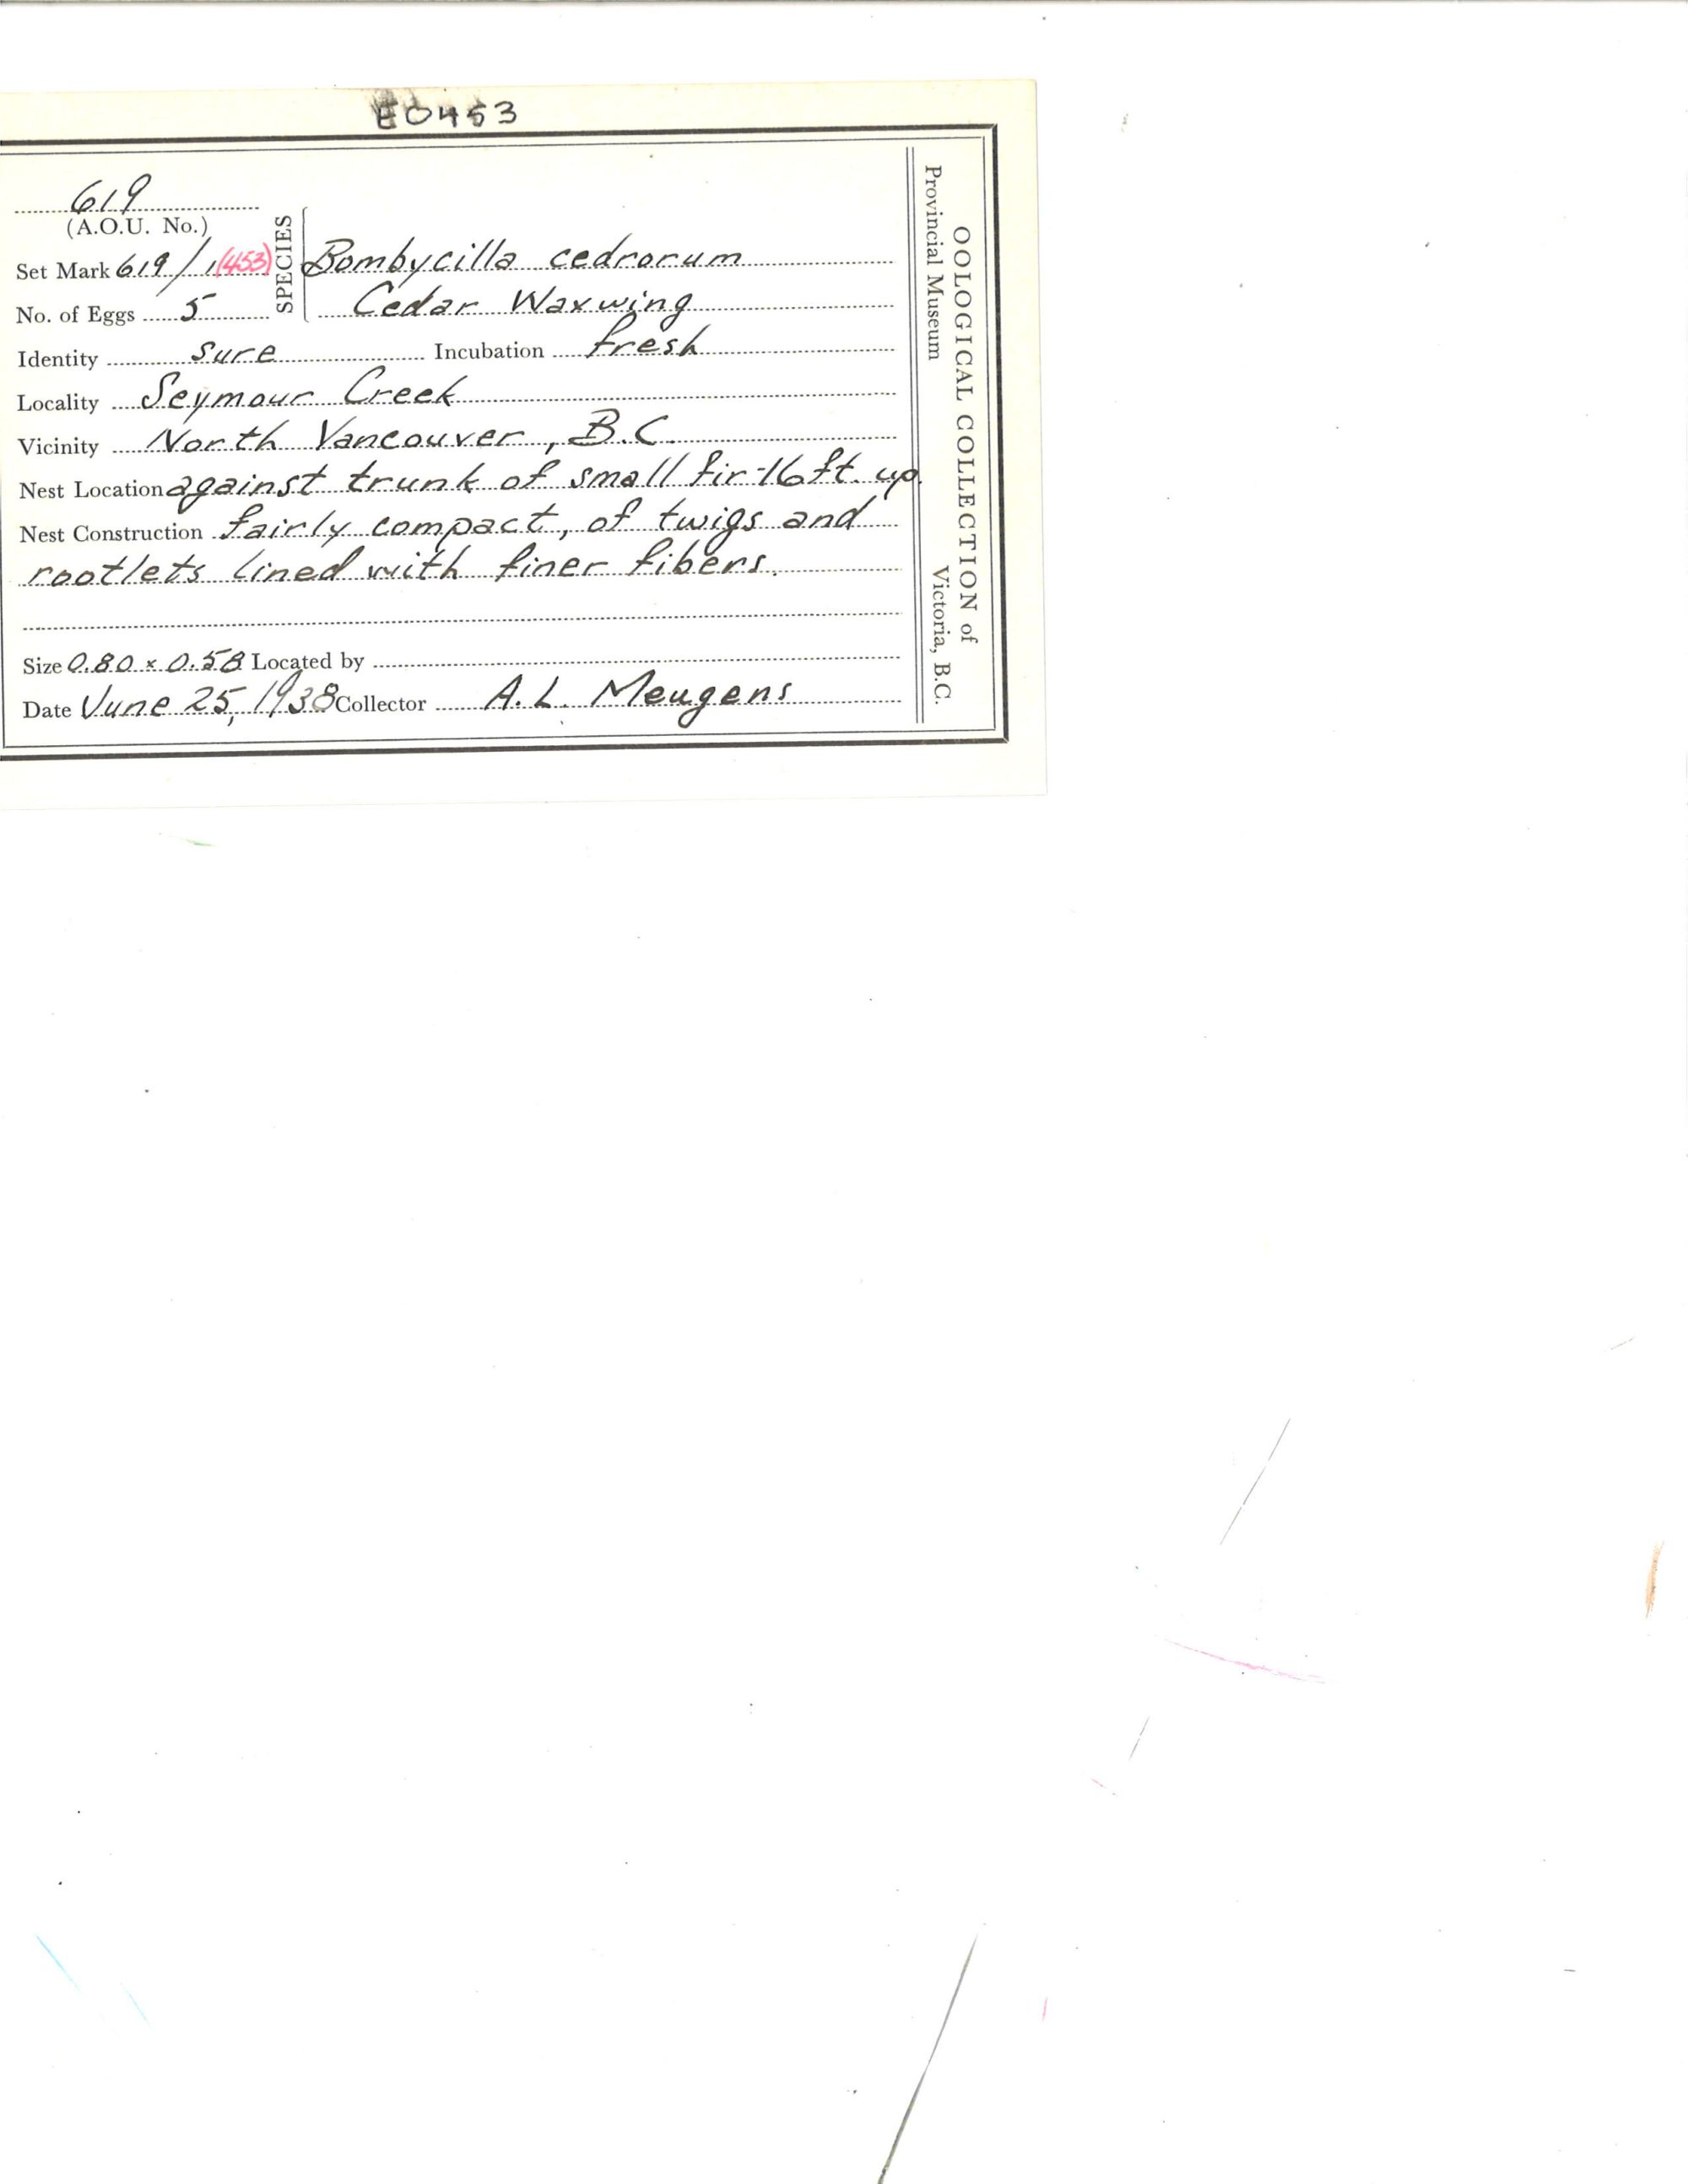 E0453
619
(A.O.U. No.)
Set Mark 619/1 (453)
No. of Eggs 5
SPECIES
Bombycilla cedrorum
Cedar Waxwing
Identity sure Incubation fresh
Locality Seymour Creek
Vicinity North Vancouver, B.C.
Nest Location against trunk of small fir-16 ft. up.
Nest Construction fairly compact, of twigs and
rootlets lined with finer fibers.
Size 0.80 x 0.58 Located by
Date June 25, 1938 Collector A.L. Meugens
OOLOGICAL COLLECTION of
Provincial Museum Victoria, B.C.